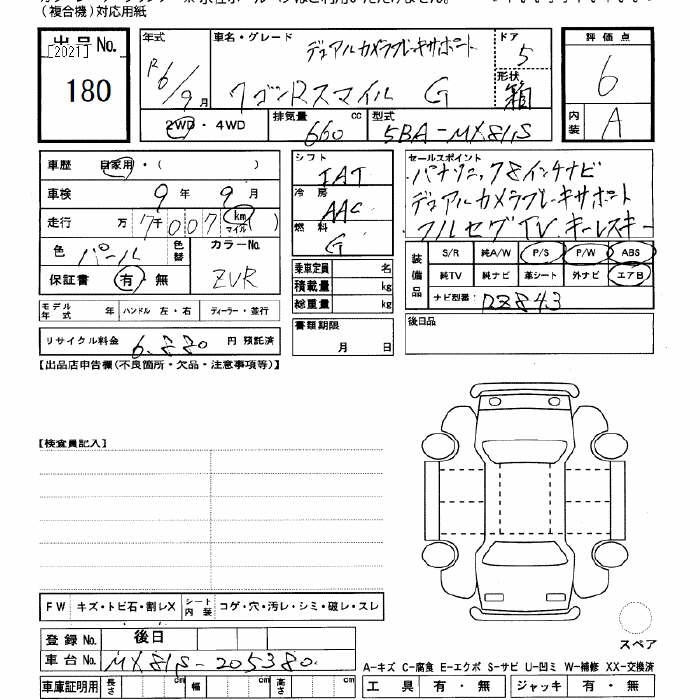 (複合機)対応用紙
出品No. [2021] 180
年式 R6/9月
車名・グレード デュアルカメラブレーキサポート
ワゴンRスマイル G
ドア 5
形状 箱
評価点 6
内装 A
2WD・4WD 排気量 660 cc 型式 5BA-MX81S
車歴 自家用・( )
車検 9年 9月
走行 万 7千007 km マイル
色 パール 色替 カラーNo. ZVR
保証書 有・無
シフト IAT
冷房 AAC
燃料 G
セールスポイント パナソニック8インチナビ
デュアルカメラブレーキサポート
フルセグTV キーレスキー
乗車定員 名
積載量 kg
総重量 kg
装備品 S/R 純A/W P/S P/W ABS
純TV 純ナビ 革シート 外ナビ エアB
ナビ型番:
モデル年式 年 ハンドル 左・右 ディーラー・並行
リサイクル料金 6,880 円 預託済
書類期限 月 日
後日品
【出品店申告欄(不良箇所・欠品・注意事項等)】
【検査員記入】
FW キズ・トビ石・割レX シート内装 コゲ・穴・汚レ・シミ・破レ・スレ
スペア
登録No. 後日
車台No. MX81S-205380
A-キズ C-腐食 E-エクボ S-サビ U-凹ミ W-補修 XX-交換済
車庫証明用 長さ cm 幅 cm 高さ cm
工具 有・無 ジャッキ 有・無